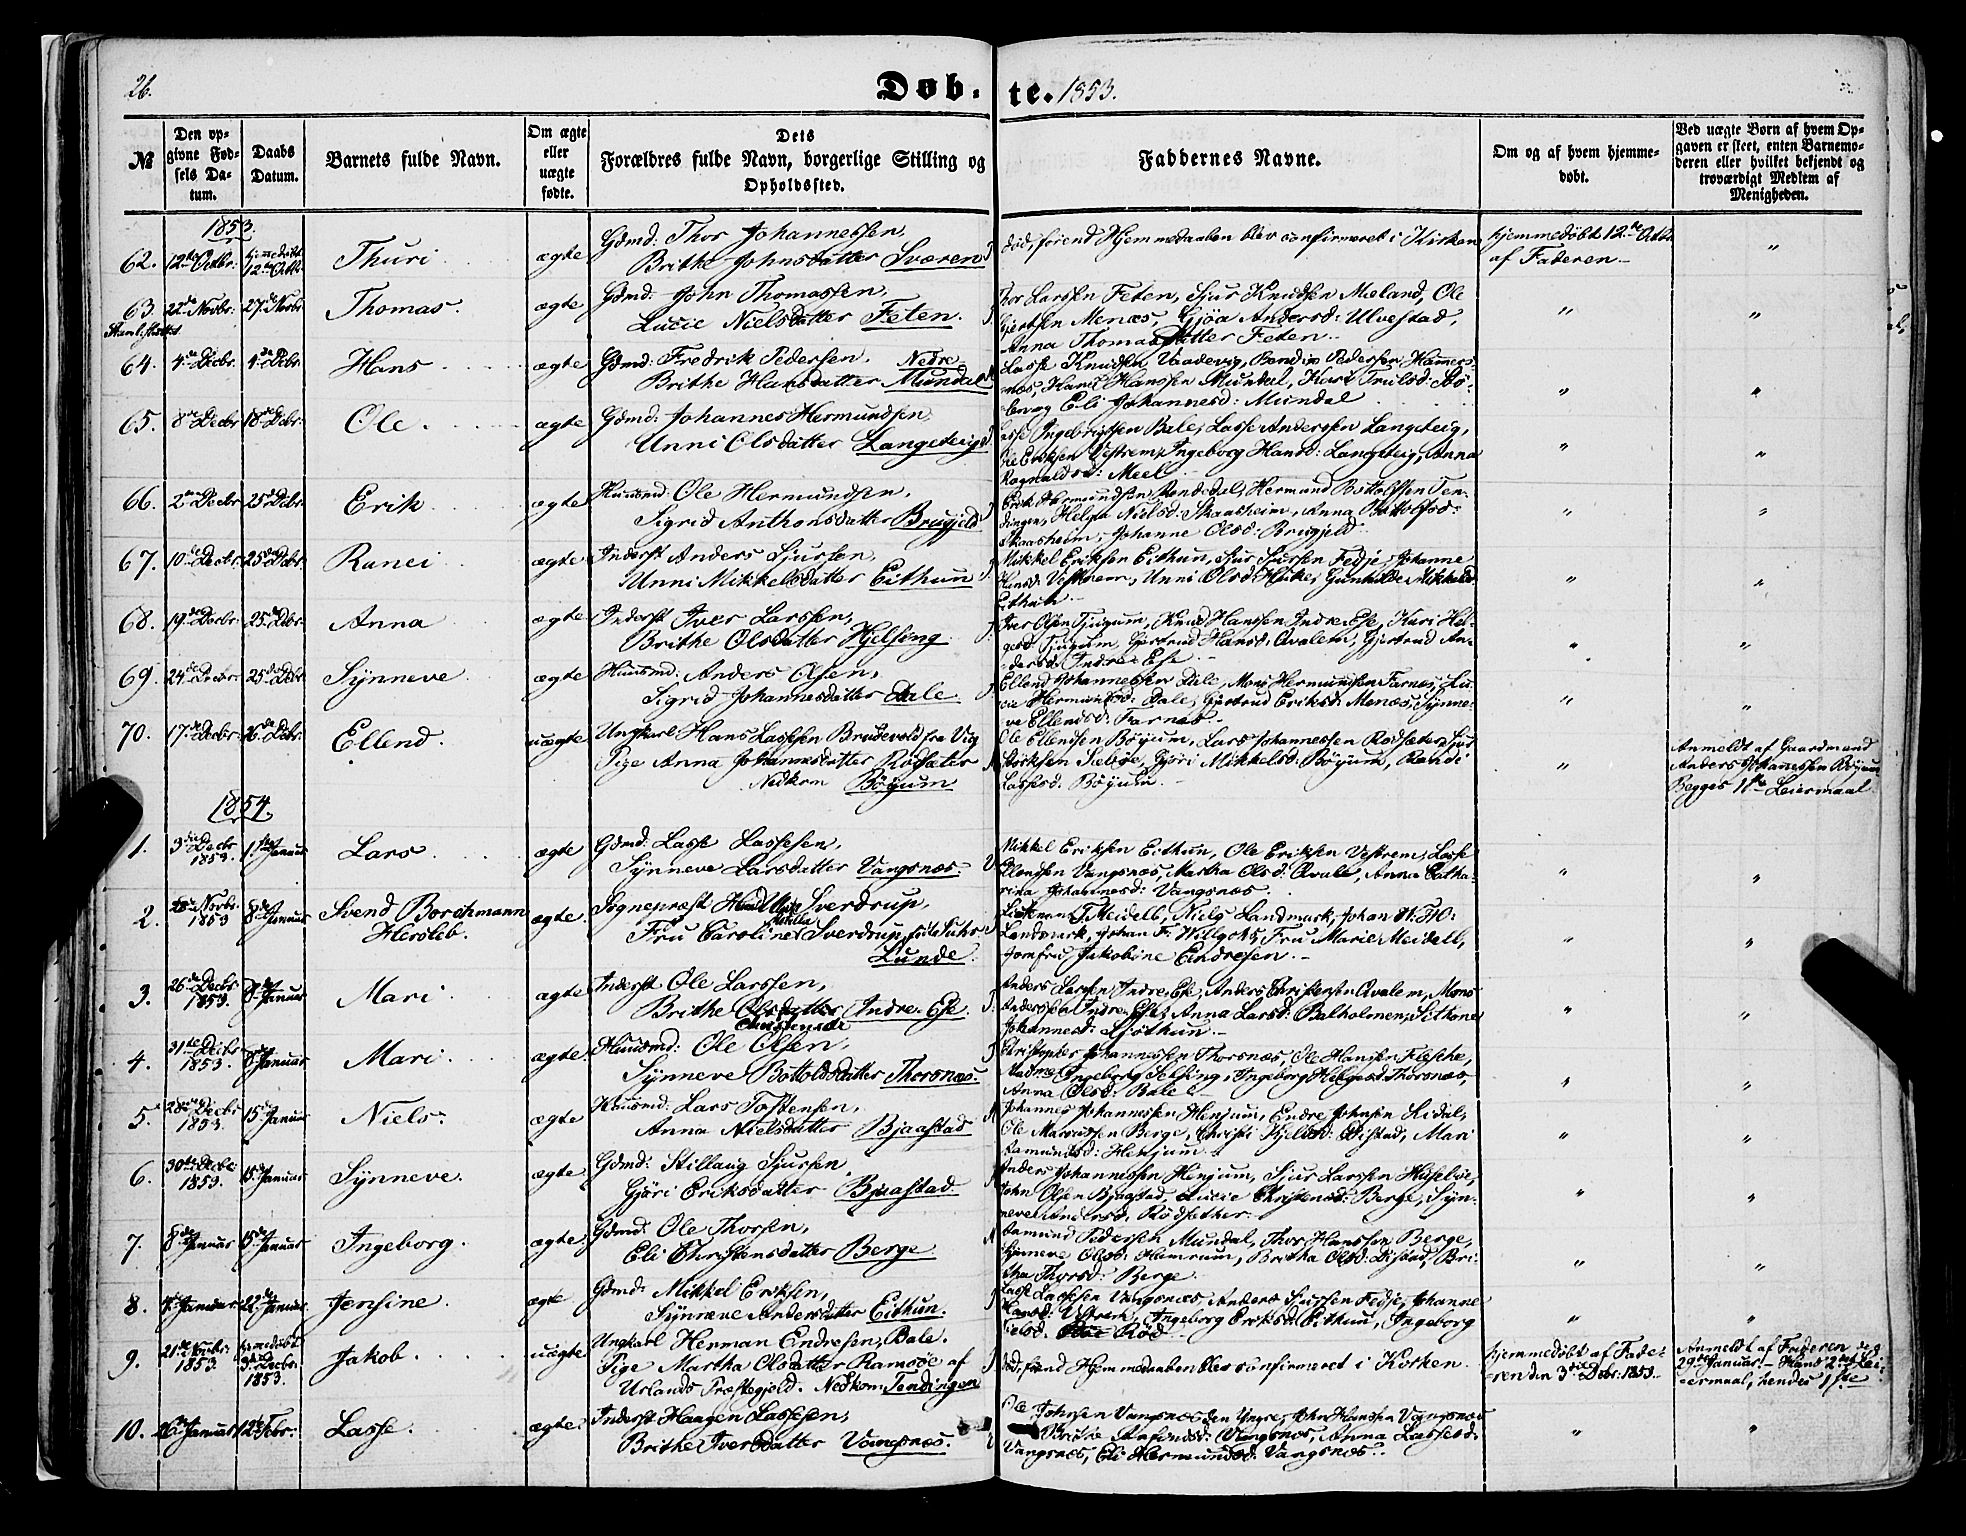 26.
Døb- te. 1853.
№
Den opgivne Fødsels Datum.
Daabs Datum.
Barnets fulde Navn.
Om ægte eller uægte fødte.
Dets Forældres fulde Navn, borgerlige Stilling og Opholdssted.
Faddernes Navne.
Om og af hvem hjemmedøbt.
Ved uægte Børn af hvem Opgaven er skeet, enten Barnemoderen eller hvilket bekjendt og troværdigt Medlem af Menigheden.
1853.
62. 12te Octbr: hjemmedøbt 12te Octbr Thuri ægte Gdmd: Thor Johannessen,
Brithe Johnsdatter Sværen
død, førend Hjemmedaaben blev confirmeret i Kirken
hjemmedøbt 12te Octbr
af Faderen.
63. 22de Novbr: 27de Novbr: Thomas. ægte Gdmd: John Thomassen,
Lucie Nielsdatter Feten.
Thor Larssen Feten, Sjur Knudsen Mæland, Ole
Gjertsen Menæs, Gjøa Andersd: Ulvestad,
Anna Thomasdatter Feten.
64. 4de Decbr. 4de Decbr. Hans ægte Gdmd: Fredrik Pedersen, Nedre
Brithe Hansdatter Mundal
Lasse Knudsen Vaadevig, Bendix Pedersen Hamers-
næs, Hans Hanssen Mundal, Kari Trulsd:
Eli Johannesd: Mundal
65. 8de Decbr 18de Decbr: Ole. ægte Gdmd: Johannes Hermundsen,
Unni Olsdatter Langetevig
Lasse Ingebrigtsen Bale, Lasse Anderssen Langeteig,
Ole Eriksen Vestrem, Ingeborg Hansd: Langeteig, Anna
Rognaldsd: Meel
66. 2den Decbr 25de Decbr. Erik ægte Huusmd: Ole Hermundsen,
Sigrid Anthonsdatter Brugjeld
Erik Hermundsen Rendedal, Hermund Bottolfsen Ten-
dingen, Helga Nielsd: Skaasheim, Anna Bottolfsd:
Skaasheim, Johanne Olsd: Brugjeld
67. 10de Decbr: 25de Decbr: Ranei ægte Inderst Anders Sjursen,
Unni Mikkelsdatter Eithun
Mikkel Eriksen Eithun, Sjur Sjursen Fedje, Johanne
Hansd: Vestrem, Unni Olsd: Huke, Gunhilde Mikkelsd:
Eithun
68. 19de Decbr: 25de Decbr: Anna ægte Inderst Iver Larssen,
Brithe Olsdatter Hjelsing
Iver Olsen Tjugum, Knud Hanssen Indre Ese, Kari Hel-
gesd: Tjugum, Gjertrud Hansd: Qvalem, Gjertrud An-
dersd: Indre Ese
69. 24de Decbr 25de Decbr Synneve. ægte Huusmd: Anders Olsen,
Sigrid Johannesdatter Dale.
Ellend Johannessen Dale, Mons Hermundsen Farnæs, Lu-
cie Hermundsd: Dale, Gjertrud Eriksd: Menæs, Synne-
ve Ellendsd: Farnæs
70. 17de Decbr: 26de Decbr: Ellend. uægte Ungkarl Hans Lassesen Brudevold fra Vig
Pige Anna Johannesdatter Rødsæter
Nedkom Bøyum
Ole Ellendsen Bøyum, Lars Johannessen Rødsæter, Sjur
Størksen Selsøe, Gjøri Mikkelsd: Bøyum, Randi
Lassesd: Bøyum.
Anmeldt af Gaardmand
Anders Johannessen Bøyum
Begges 1ste Leiermaal.
1854.
1. 3die Decbr 1853. 1ste Januar Lars ægte Gdmd: Lasse Lassesen,
Synneve Larsdatter Vangsnæs.
Mikkel Eriksen Eithun, Ole Eriksen Vestrem, Lasse
Ellendsen Vangsnæs, Martha Olsd: Qvale, Anna Catha-
rina Johannesd: Vangsnæs.
2. Novbr: 1853 8de Januar Svend Borchmann
Hersleb. ægte. Sognepræst Sverdrup,
Fru Caroline Sverdrup, født Suhr
Lunde.
Meidell, Niels Landmark, Johan
Landmark, Johan F: Willgohs, Fru Marie Meidell,
Jomfru Jakobine Endresen.
3. 26de Decbr. 1853. 8de Januar Mari ægte Inderst Ole Larssen,
Brithe Olsdatter Indre Ese.
Christensd:
Anders Larssen Indre Ese, Anders Christensen Qvalem, Mons
Andersen Indre Ese, Anna Larsd: Balholmen, Sithone
Johannesd: Sjøthun
4. 31te Decbr 1853. 8de Januar Mari ægte. Huusmd: Ole Olsen,
Synneve Bottoldsdatter Thorsnæs.
Christopher Johannessen Thorsnæs, Ole Hanssen Flesche,
Madme Ingeborg Selsing, Ingeborg Helgesd: Thorsnæs,
Anna Olsd: Bale
5. 28de Decbr 1853. 15de Januar Niels. ægte Huusmd: Lars Tostensen,
Anna Nielsdatter Bjaastad
Johannes Johannessen Henjum, Endre Johnsen Lidal,
Ole Marcussen Berge, Christi Kjelsd: Distad, Mari
Aamundsd: Henjum.
6. 30te Decbr 1853. 15de Januar Synneve. ægte Gdmd: Stillaug Sjursen,
Gjøri Eriksdatter Bjaastad
Anders Johannessen Henjum, Sjur Larssen Husebøe,
John Olsen Bjaastad, Lucie Christensd: Berge, Syn-
neve Andersd. Rødsether.
7. 8de Januar 15de Januar Ingeborg. ægte Gdmd: Ole Thorsen,
Eli Christensdatter Berge
Aamund Pedersen Mundal, Thor Hanssen Berge,
Synneve Olsd: Hamrum, Britha Olsd: Distad, Bri-
tha Thorsd: Berge.
8. Januar 22de Januar Jensine. ægte Gdmd: Mikkel Eriksen,
Synneve Andersdatter Eithun.
Lasse Lassesen Vangsnæs, Anders Sjursen Fedje, Johanne
Hansd: Vestrem, Ingeborg Eriksd: Eithun, Ingeborg
Nielsd. Rød
9. 21de 1853 hjemmedøbt 3die Decbr: 1853. Jakob. uægte Ungkarl Herman Endresen, Bale.
Pige Martha Olsdatter Ramsøe af
Urlands Præstegjeld. Nedkom: Tendingen
død, førend Hjemmedaaben blev confirmeret i Kirken.
hjemmedøbt af Fade-
ren den 3die Decbr: 1853.
Anmeldt af Faderen den
29de Januar. Hans 2det Lei-
ermaal, hendes 1ste
10. Januar 12te Febr: Lasse. ægte. Inderst Haagen Lassesen,
Brithe Iversdatter Vangsnæs.
Ole Johnsen Vangsnæs den Yngre, John Hanssen Vangsnæs
Vangsnæs, Anna Lassesd:
Vangsnæs, Eli Hermundsd: Vangsnæs.